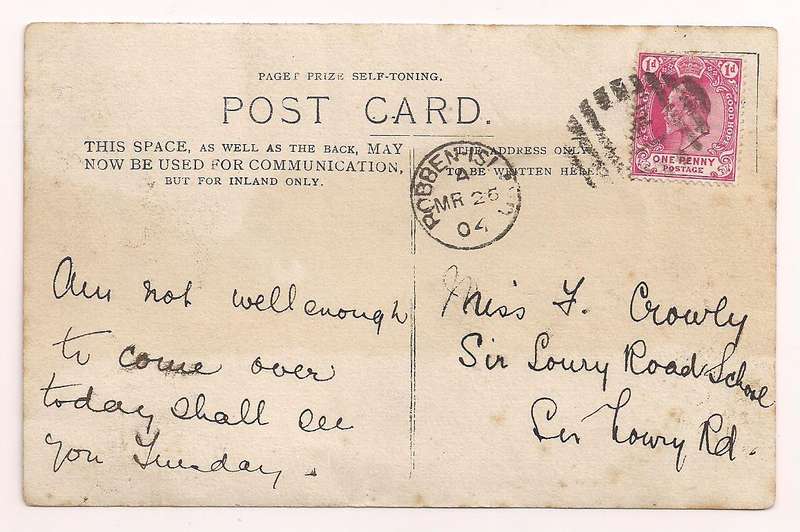 PAGET PRIZE SELF-TONING.
POST CARD.
THIS SPACE, AS WELL AS THE BACK, MAY
NOW BE USED FOR COMMUNICATION,
BUT FOR INLAND ONLY.
THE ADDRESS ONLY
TO BE WRITTEN HERE.
ROBBEN ISLAND
A
MR 26
04
1d 1d
GOOD HOPE
ONE PENNY
POSTAGE
Am not well enough
to come over
today shall see
you Tuesday.
Miss F. Crowly
Sir Lowry Road School
Sir Lowry Rd.